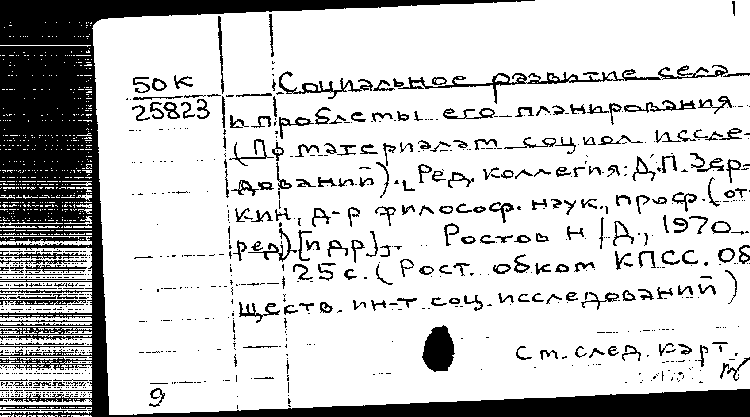 50К Социальное развитие села
25823 и проблемы его планирования
(По материалам социол. иссле-
дований). Ред. коллегия: Д.П. Зер-
кин, д-р философ. наук, проф. (от
ред) [и др.]. Ростов н/Д., 1970
25 с. (Рост. обком КПСС. Об
ществ. ин-т соц. исследований)
См. след. карт.
9